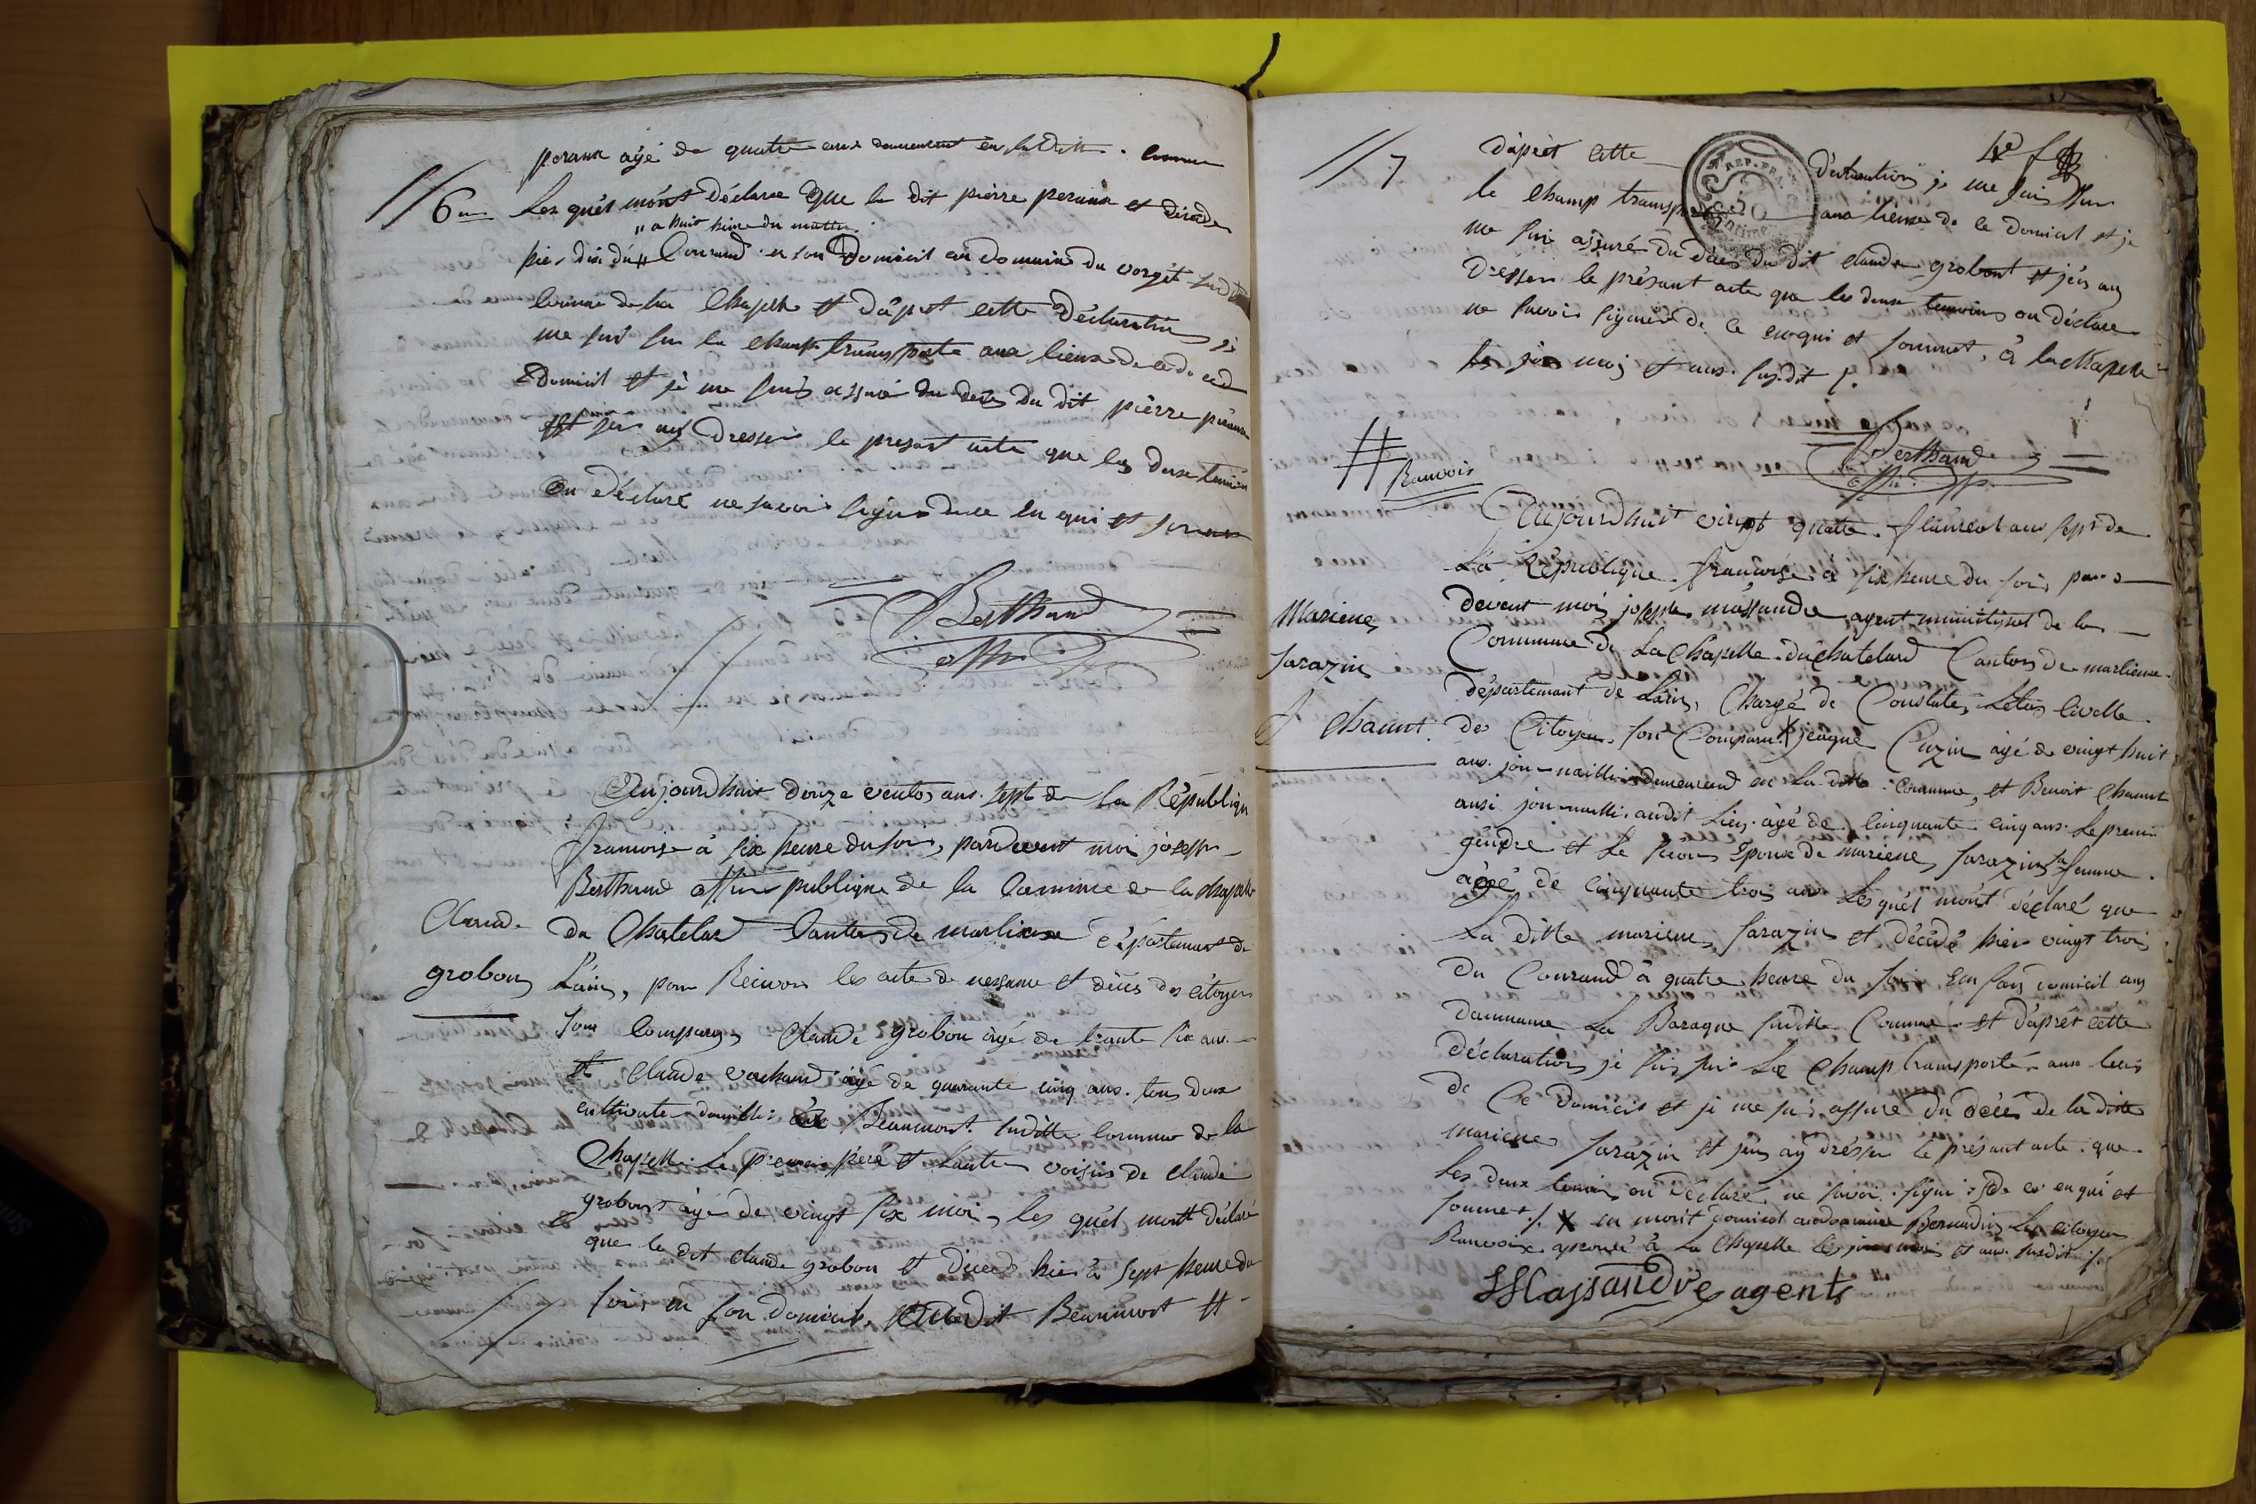 peraux agé de quatre ans demeurant en la ditte commune
//6me Les quels m'ont déclaré que le dit pierre peraux et décédé
" a huit heure du mattin
hier dix du " Courand en son Domicil au domaine du vorgêt susdit
comune de la Chapelle et d'après cette Déclaration je
me suis sur le champ transporté aux lieux de ce
Domicil et je me suis assuré du decès du dit pierre péraux
et j'en ay dresser le presant acte que les deux temoin
on déclaré ne savoir signer de ce en qui et somm
Berthand
offi
Aujourdhuit douze ventos ans sept de la République
francoise à six heure du soir, pardevent moi joseph
Berthand offici publique de la Commune de la chapelle
Claude
du Chatelar Canton de marlieux département de
grobon
L'ain, pour Recevoir les acte de nessance et décès des citoyens
sont comparus Claude grobon agé de trante six ans
et Claude vachand agé de quarante cinq ans tous deux
cultivate domicilié à Beaumont suditte commune de la
Chapelle. Le premier père et l'autre voisin de claude
grobont agé de vingt six mois, les quel mont déclaré
que le dit claude grobon et décédé hier à sept heure du
soir en son domicil, audit Beaumont et
//7
d'après cette Déclaration je me suis sur
REP. FRA.
le champ transporté aux lieux de ce domicil et je
me suis assuré du décès du dit claude grobont et j'en ay
Dresser le présant acte que les deux temoins on déclaré
ne savoir signer de ce enqui et sommet, à la chapelle
les jour mois et ans susdit ./.
Berthand
offi
# Ranvoix
Aujourdhuit vingt quatre floureal ans sept de
La République francoise à six heure du soir par
devent moi joseph massandre agent municipal de la
Mariene
Commune de La Chapelle du chatelard Canton de marlieux
sarazin
département de Lain, Chargé de Constater Létas civille
F chanut
des Citoyen sont Comparut X jeaque Cuzin agé de vingt huit
ans journaillier demeurend en La ditte commune, et Benoit chanut
ausi journailli audit Lieu agé de cinquante cinq ans Le premier
gendre et le second Epoux de mariene sarazin sa femme
agé de cinquante trois ans Les quel mont déclaré que
La ditte mariene sarazin et décédé hier vingt trois
du Courand à quatre heure du soir En son domicil au
dommaine La Baraque suditte Commune et d'après cette
déclaration je suis sur Le Champ transporté aux lieux
de Ce Domicil et je me suis assuré du décès de la ditte
mariene sarazin et j'en ay drésser Le présant acte que
Les deux temoin on déclaré ne savoir signer de ce enqui et
sommet ./. X en domaine Bernardin Les citoyen
Ranvoix aprouvé à La Chapelle les jour mois et ans susdit ./.
Massandre agent